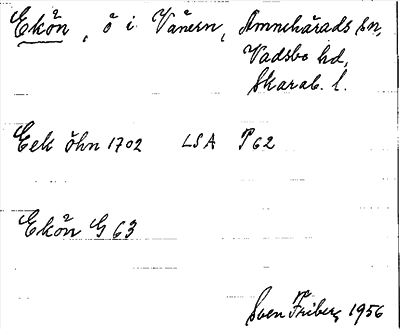 Ekön, ö i Vänern, Amnehärads sn,
Vadsbo hd,
Skarab. l.
Eek öhn 1702 LSA P62
Ekön G 63
Sven Friberg 1956